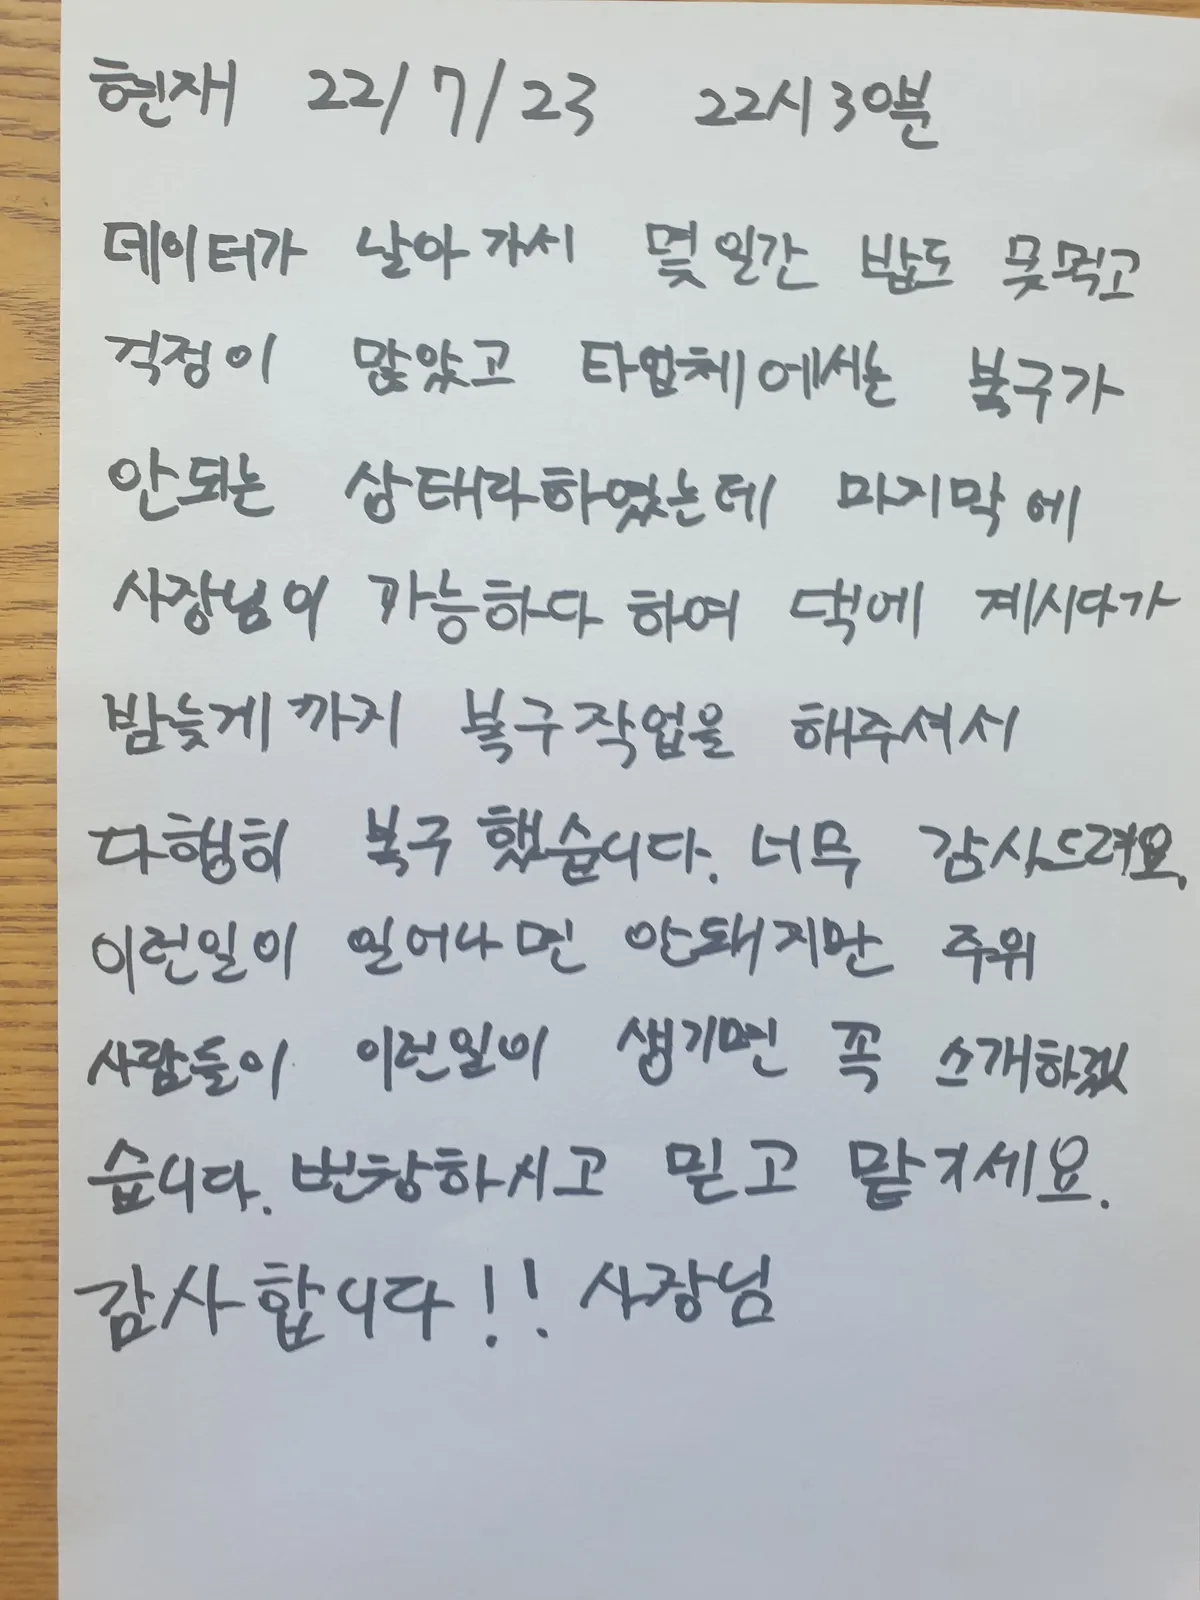 현재 22/7/23 22시30분
데이터가 날아가서 몇일간 밥도 못먹고
걱정이 많았고 타업체에서는 복구가
안되는 상태라하였는데 마지막에
사장님이 가능하다 하여 댁에 계시다가
밤늦게까지 복구작업을 해주셔서
다행히 복구했습니다. 너무 감사드려요.
이런일이 일어나면 안돼지만 주위
사람들이 이런일이 생기면 꼭 소개하겠
습니다. 번창하시고 믿고 맡기세요.
감사합니다!! 사장님